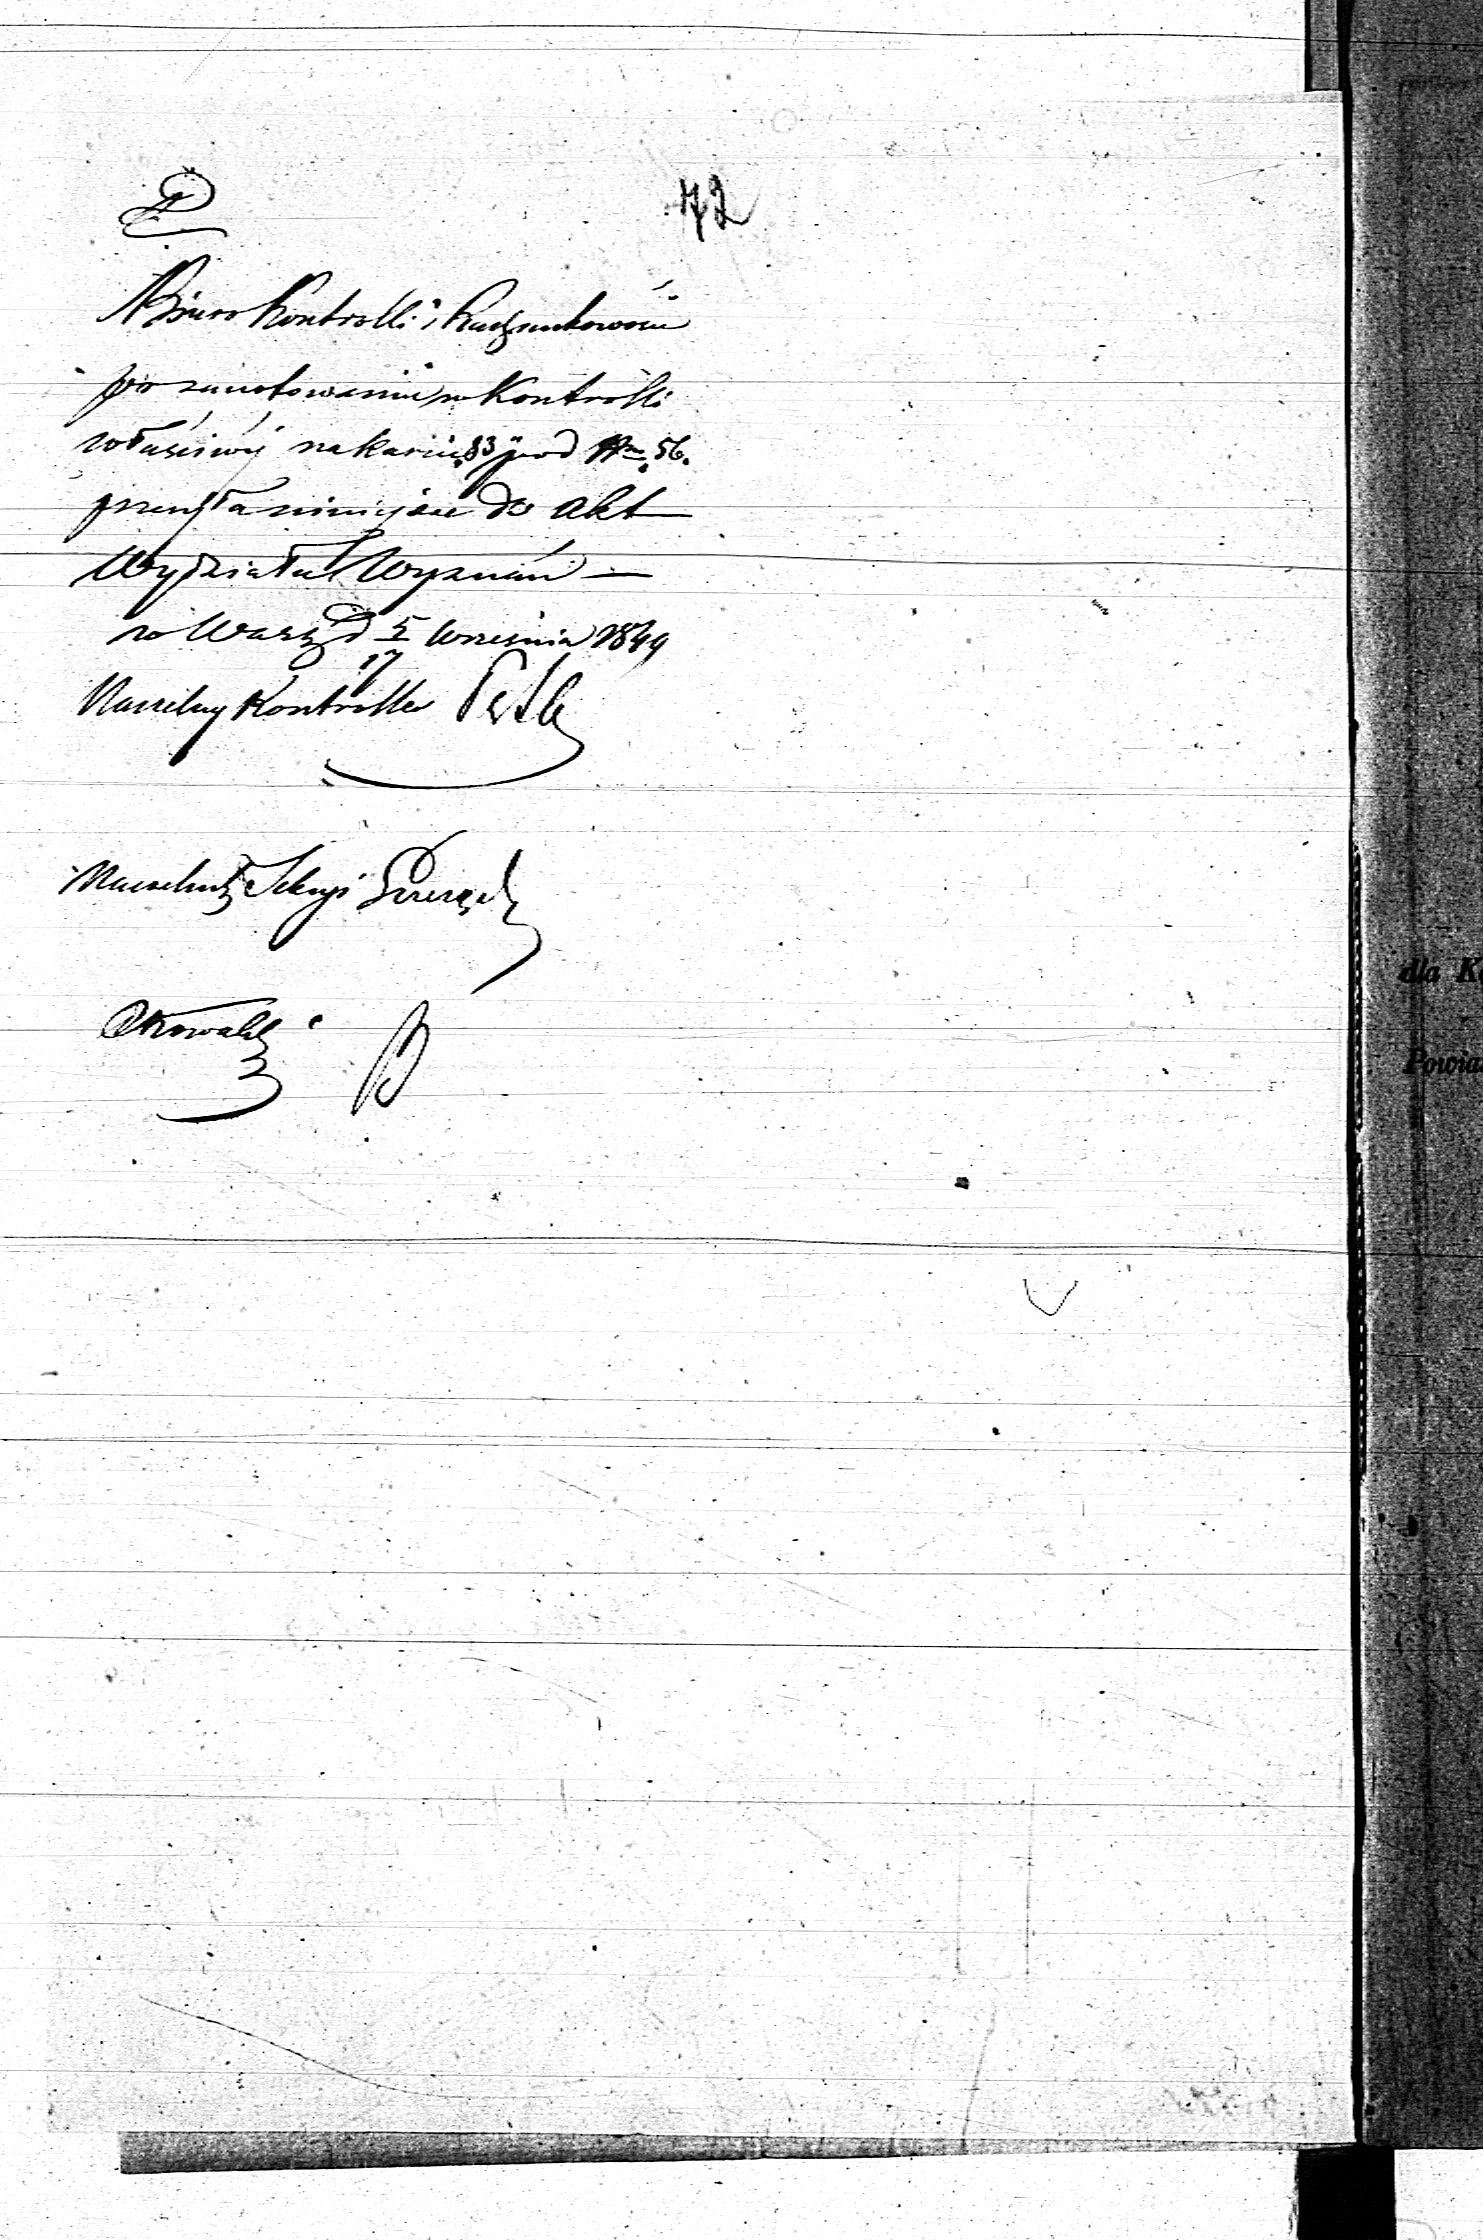 72
Biuro Kontrolli i Rachunkowości
po zanotowaniu w Kontrolli
właściwéj na karcie 83 pod Nm 56.
przesyła niniejsze do akt
Wydziału Wyznań —
w Warsz. d 5/17 Września 1849
Naczelny Kontroller
Naczelnik Sekcyi
dla K
Powia